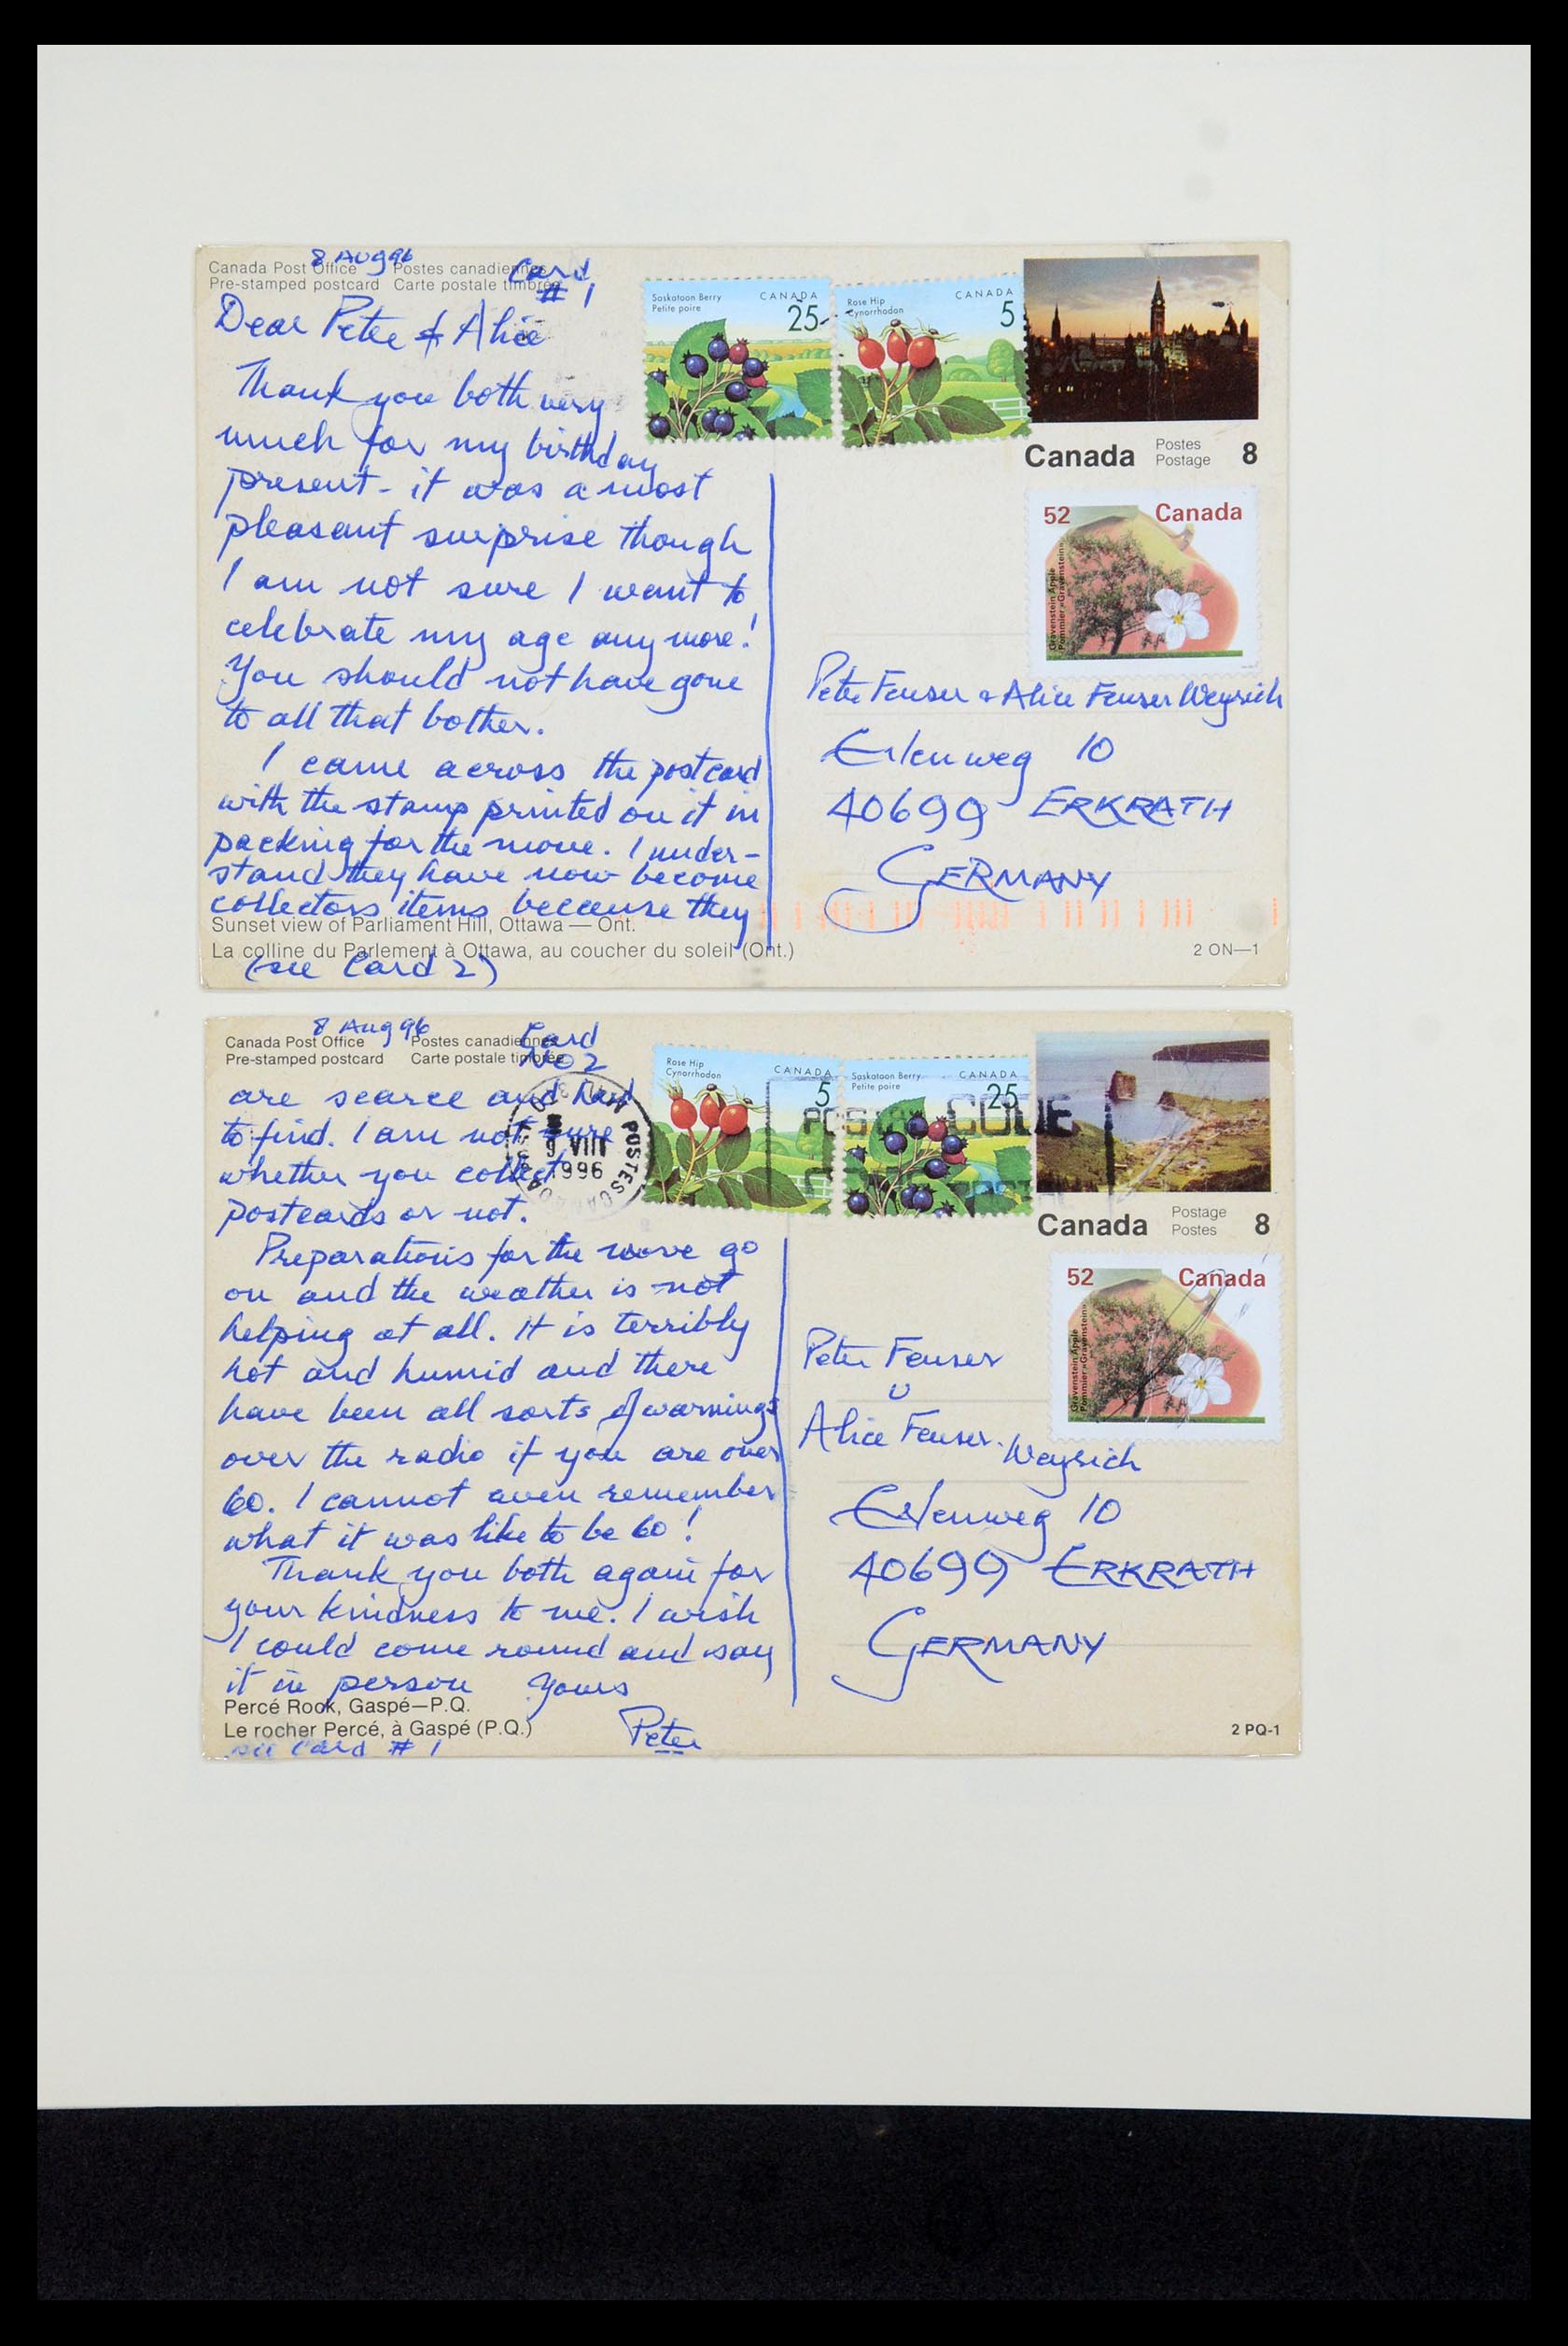 8 Aug 96
Canada Post Office Postes canadiennes
Pre-stamped postcard Carte postale timbrée
Card
# 1
Saskatoon Berry
Petite poire
CANADA
25
Rose Hip
Cynorrhodon
CANADA
5
Canada Postes Postage 8
52 Canada
Gravenstein Apple
Pommier «Gravenstein»
Dear Peter & Alice
Thank you both very
much for my birthday
present - it was a most
pleasant surprise though
I am not sure I want to
celebrate my age any more!
You should not have gone
to all that bother.
I came across the postcard
with the stamp printed on it in
packing for the move. I under-
stand they have now become
collectors items because they
Sunset view of Parliament Hill, Ottawa — Ont.
La colline du Parlement à Ottawa, au coucher du soleil (Ont.)
(see Card 2)
Peter Feuser & Alice Feuser Weyrich
Erlenweg 10
40699 ERKRATH
GERMANY
2 ON—1
8 Aug 96
Canada Post Office Postes canadiennes
Pre-stamped postcard Carte postale timbrée
Card
No 2
Rose Hip
Cynorrhodon
CANADA
5
Saskatoon Berry
Petite poire
CANADA
25
POSTAL CODE
POSTES CANADA
9 VIII
1996
Canada Postage Postes 8
52 Canada
Gravenstein Apple
Pommier «Gravenstein»
are scarce and hard
to find. I am not sure
whether you collect
postcards or not.
Preparations for the move go
on and the weather is not
helping at all. It is terribly
hot and humid and there
have been all sorts of warnings
over the radio if you are over
60. I cannot even remember
what it was like to be 60!
Thank you both again for
your kindness to me. I wish
I could come round and say
it in person Yours
Peter
Percé Rock, Gaspé—P.Q.
Le rocher Percé, à Gaspé (P.Q.)
see Card # 1
Peter Feuser
u
Alice Feuser-Weyrich
Erlenweg 10
40699 ERKRATH
GERMANY
2 PQ-1